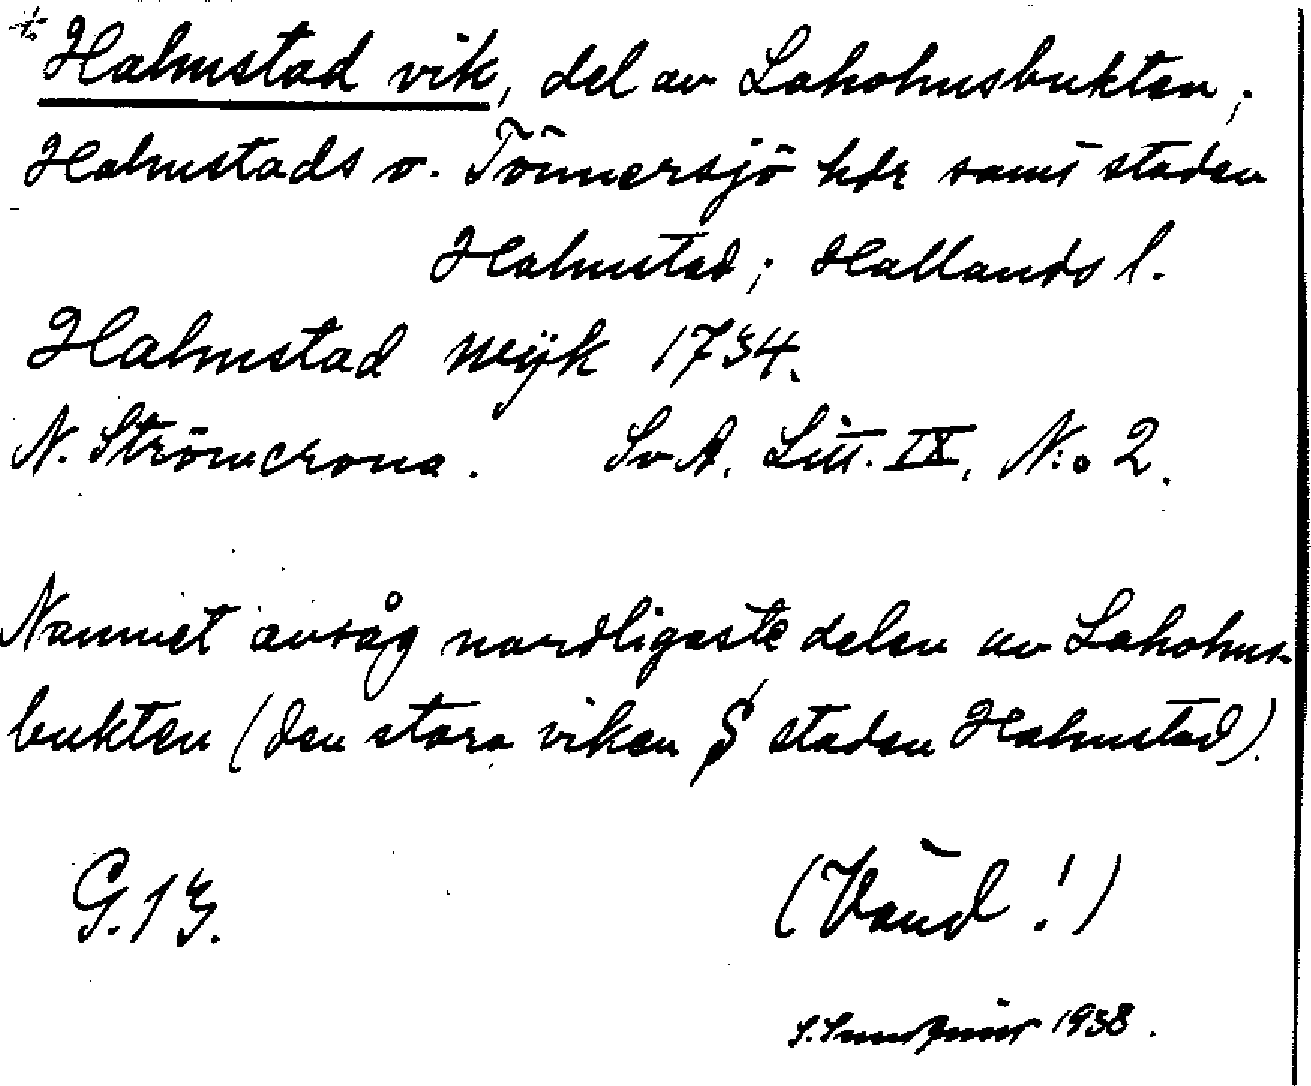 * Halmstad vik, del av Laholmsbukten;
Halmstads o. Tönnersjö hdr samt staden
Halmstad; Hallands l.
Halmstad wijk 1734.
N. Strömcrona. SvA. Litt. IX, N:o 2.
Namnet avsåg nordligaste delen av Laholms-
bukten (den stora viken S staden Halmstad).
G. 13.
(Vänd!)
1938.